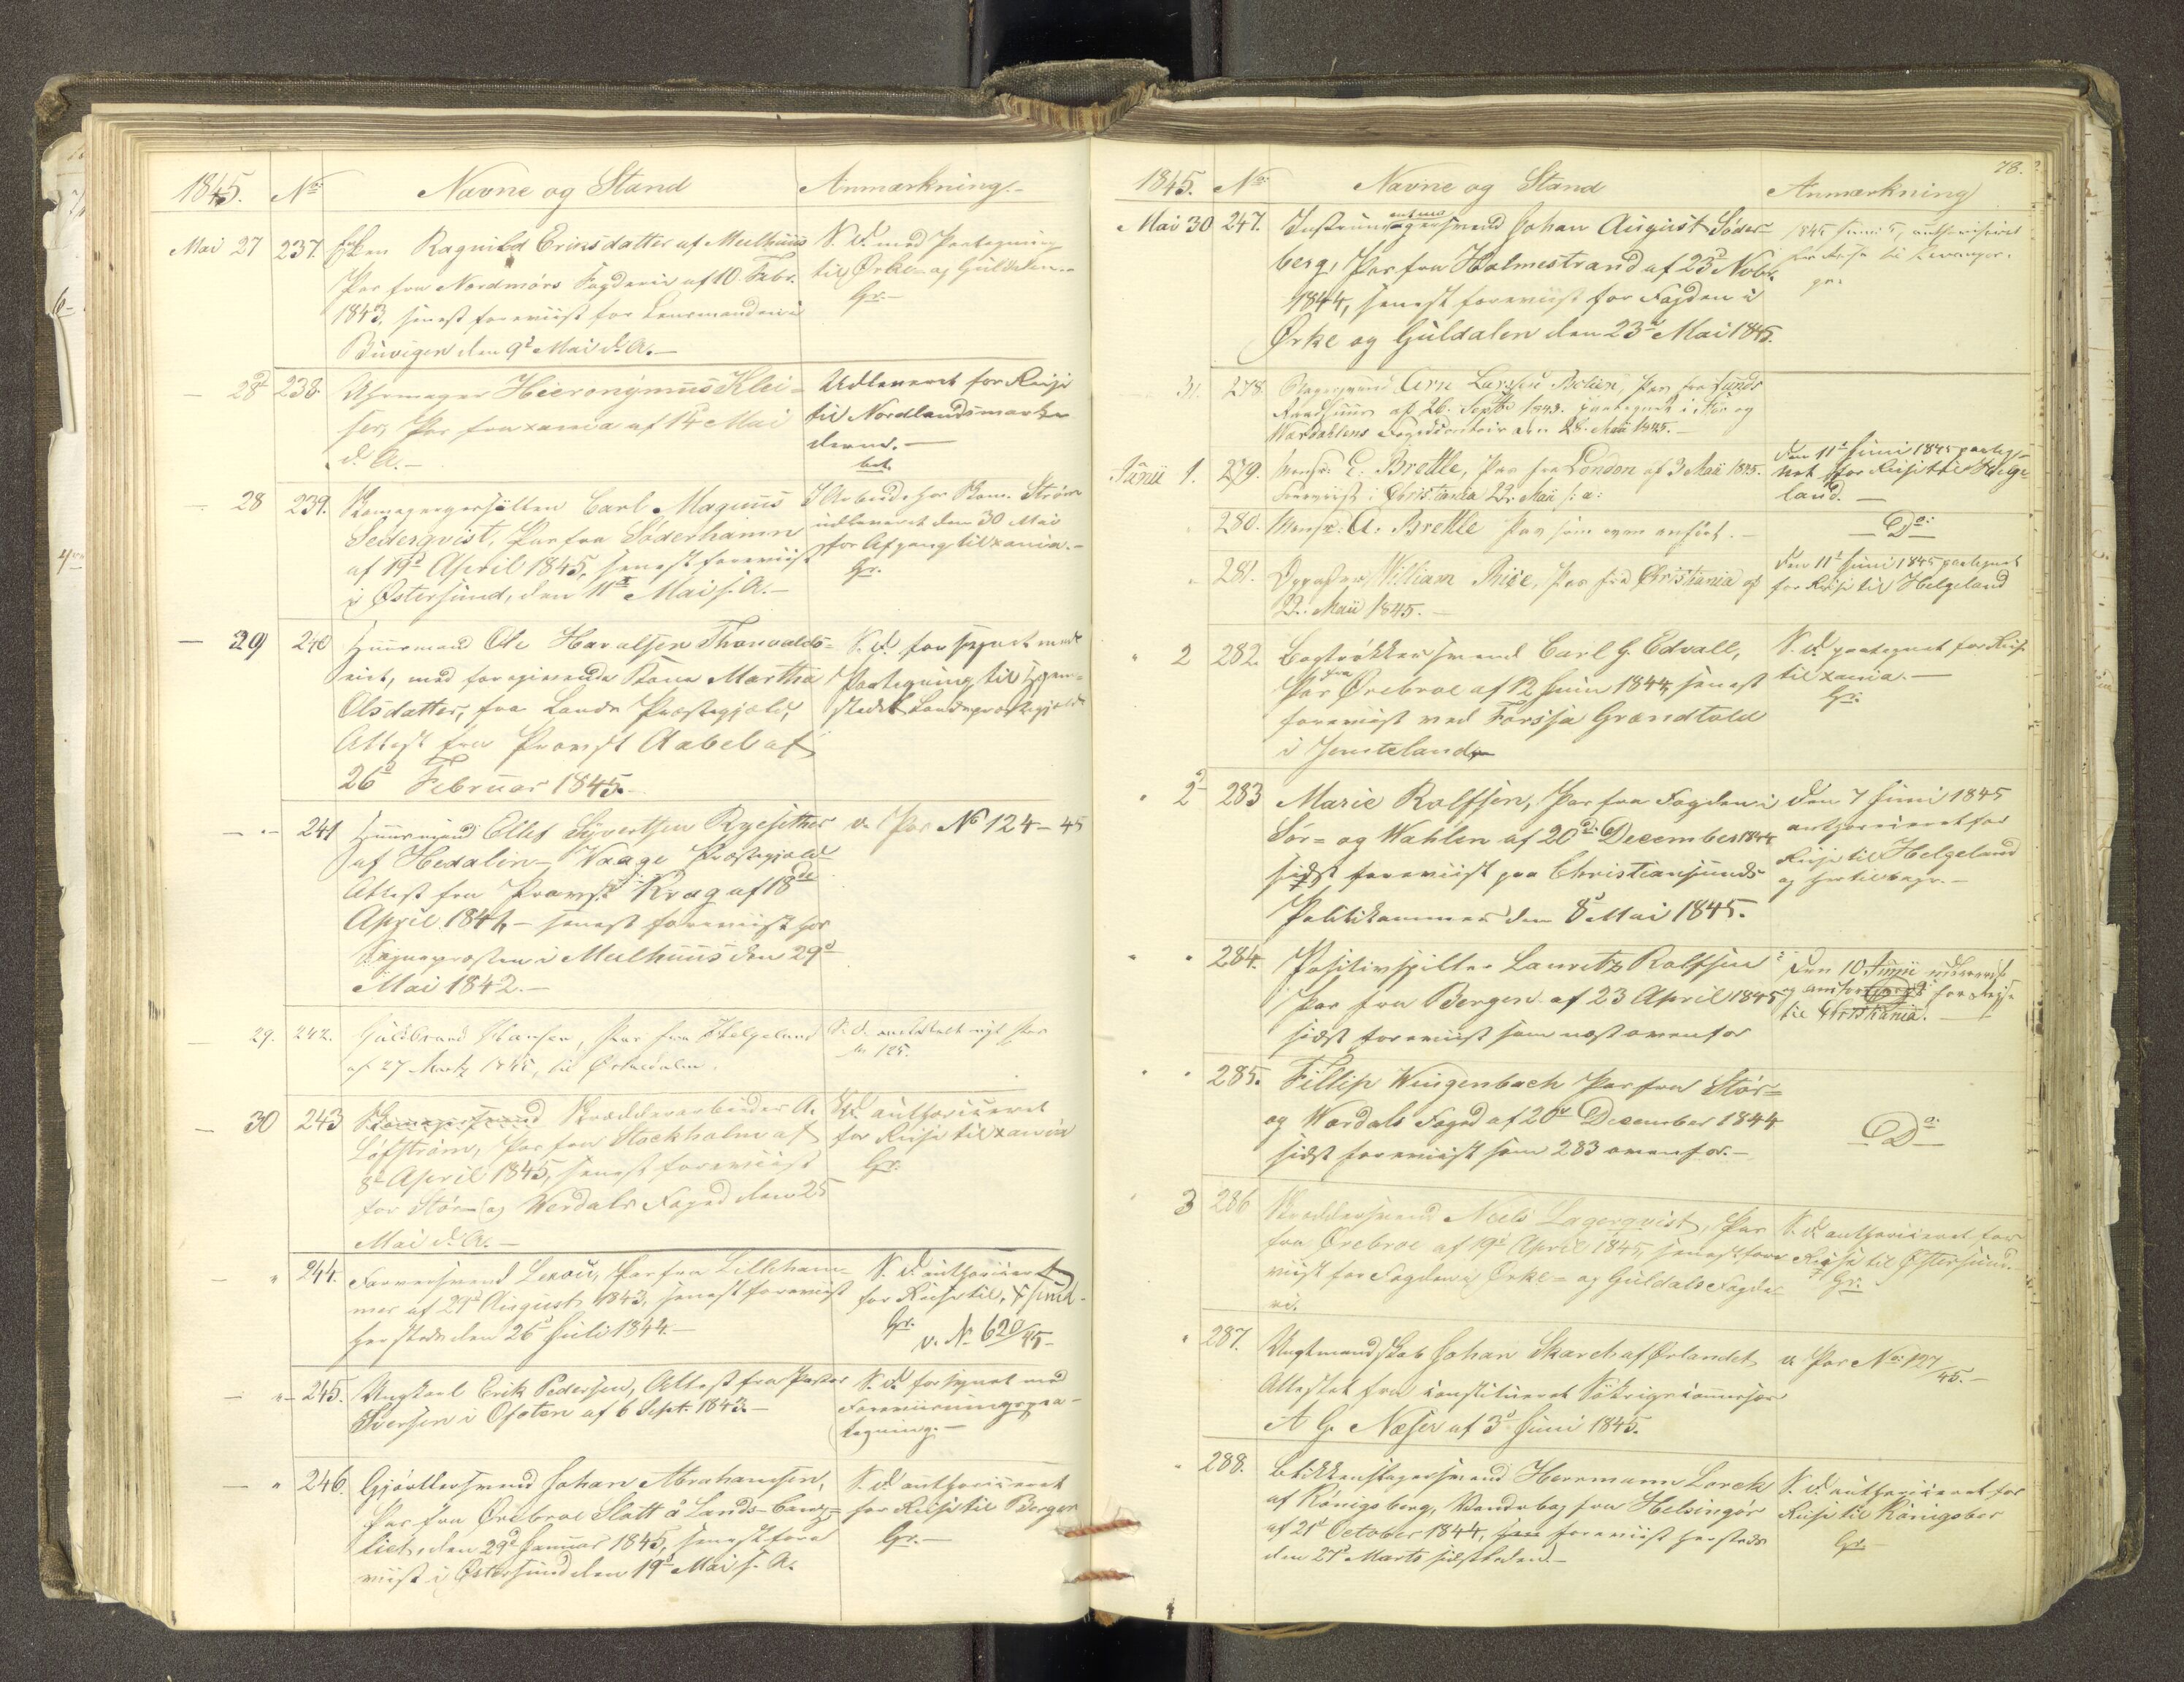 1845.
No
Navne og Stand
Anmærkning.
Mai 27
237.
Ragnild Erinsdatter af Meelhuus
Pas fra Nordmørs Fogderie af 10 Febr.
1843, senest foreviist for Lensmanden i
Buvigen den 9d Mai d. A.
S. d. med Paategning
til Ørke- og Guldalen.
Gr.
28d
238.
Uhrmager Hieronymus Klei-
ser, Pas fra xania af 14d Mai
d. A.
Udleveret for Reise
til Nordlandsmarke-
derne.
28
239.
Carl Magnus
Sederqvist, Pas fra Søderhamn
af 19d April 1845, senest foreviist
i Østersund, den 11d Mai s. A.
udleveret den 30 Mai
for Afgang til xania.
Gr.
29
240
Huusmand Ole Haralsen Thorvalds-
eiet, med foregivende Kone Martha
Olsdatter, fra Lands Præstegjeld,
Attest fra Provst Aabel af
26d Februar 1845.
S. d. forsynet med
Paategning til Hjem-
stedet Lands Præstegjeld
241
Huusmand Ellef Syvertsen Ryesether
af Hedalen - Vaage Præstegjeld
Attest fra Provst Krag af 18de
April 1841, - senest foreviist for
Sognepresten i Meelhuus den 29d
Mai 1842.
v. Pas No 124-45
29.
242.
Guldbrand Hansen, Pas fra Helgeland
af 27 Marts 1845, til Ørkedalen.
S. d. meddeelt nyt Pas
No 125.
30
243
Skrædderarbeider A.
Løfstrøm, Pas fra Stockholm af
8d April 1845, senest foreviist
for Stør- og Werdals Foged den 25
Mai d. A.
S. d. authoriseret
for Reise til xania
Gr.
244.
Farversvend Lexou, Pas fra Lilleham-
mer af 21d August 1843, senest foreviist
hersteds den 26d Juli 1844.
S. d. authoriseret
for Reise til
Gr.
v. No 620/45
245.
Ungkarl Erik Pedersen, Attest fra Pastor
Iversen i Ofoten af 6 Sept. 1843.
S. d. forsynet med
Foreviisningspaa-
tegning.
246.
Gjørtlersvend Johan Abrahamsen,
Pas fra Örebroe Slott å Lands-Canz-
liet, den 29d Januar 1845, senest fore-
viist i Østersund den 19d Mai s. A.
S. d. authoriseret
for Reise til Bergen
Gr.
78.
1845.
No
Navne og Stand
Anmærkning
Mai 30
247.
Johan August Søder-
berg, Pas fra Holmestrand af 23d Novbr.
1844, senest foreviist for Fogden i
Ørke og Guldalen den 23d Mai 1845.
1845 Juni 5, authoriseret
for Reise til Levanger.
Gr.
31.
278.
Arn Larsen Bolien, Pas fra Sunds
af 26. Septbr 1843. paategnet i Stør og
Wærdahlens Fogedcontoir den 28. Mai 1845.
Junii 1.
279.
Monsr. E. Brettle, Pas fra London af 3 Maii 1845.
Foreviist i Christiania 22. Maii s. a.
Den 11d Juni 1845 paateg-
net for Reise til Helge-
land.
280.
Monsr. A. Brettle Pas som oven anført.
Do
281.
William Rise, Pas fra Christiania af
22. Maii 1845.
Den 11d Juni 1845 paategnet
for Reise til Helgeland
2
282.
Bogtrøkkersvend Carl G. Edvall,
Pas fra Ørebroe af 12 Juni 1844, senest
foreviist ved Forssa Grændtold
i Jemteland
S. d. paategnet for Reise
til xania.
Gr.
2d
283
Marie Rolfsen, Pas fra Fogden i
Sør- og Wahlen af 20de December 1844
sidst foreviist paa Christiansunds
Politikammer den 8d Mai 1845.
Den 7 Juni 1845
authoriseret for
Reise til Helgeland
og hertilbage.
284.
Positivspiller Lauritz Rolfsen
Pas fra Bergen af 23 April 1845
sidst foreviist som næst ovenfor
Den 10 Junii
for Reise
til Christiania.
285.
Fillip Wingenbach Pas fra Stør-
og Wærdals Foged af 20d December 1844
sidst foreviist som 283 ovenfor.
Do
3
286
Skreddersvend Neels Lagerqvist, Pas
fra Örebroe af 19d April 1845, senest fore-
viist for Fogden i Ørke- og Guldals Fogde-
ri.
S. d. authoriseret for
Reise til Østersund.
Gr.
287.
Johan Skarch af Ørlandet
Attestet fra constitueret
A G. Næser af 3d Juni 1845.
v. Pas No: 127/45.
288.
Blikkenslagersvend Herrmann Lorck
af Königsberg, Vandrebog fra Helsingør
af 21d October 1844, foreviist hersteds
den 27d Marts sidstleden.
S. d. authoriseret for
Reise til Königsber
Gr.